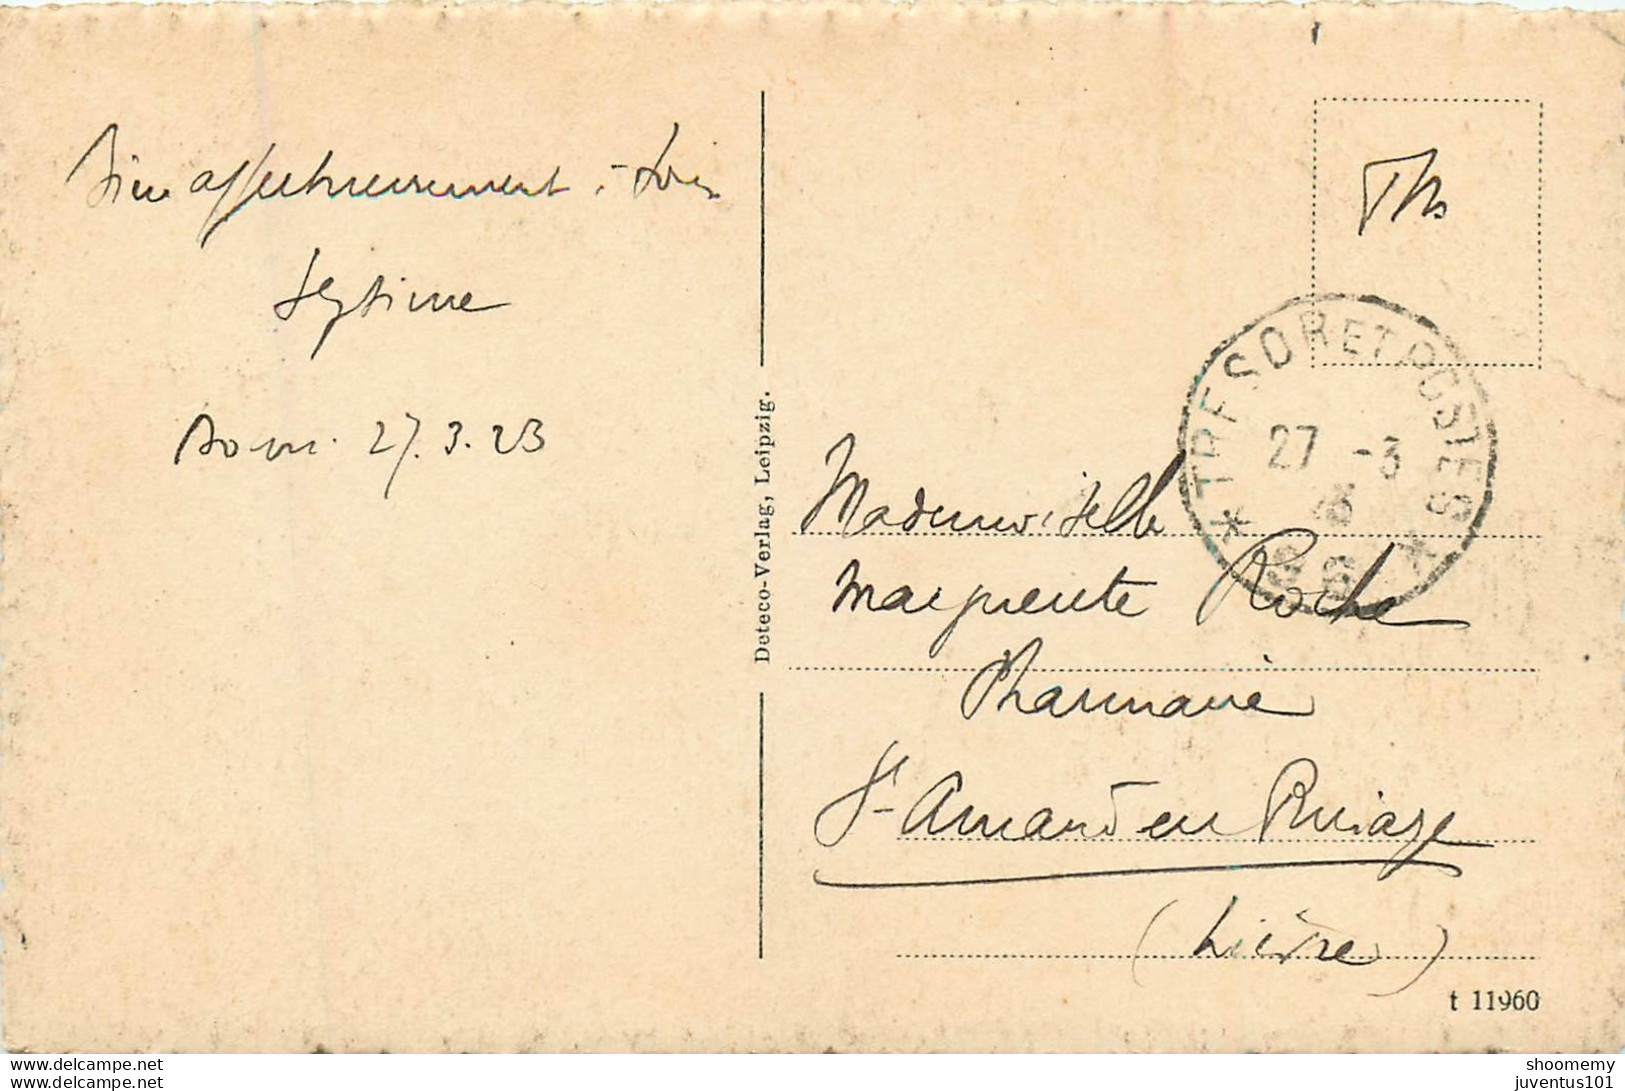 Bien affectueusement. -
Septime
Bonn. 27.3.23
Deteco-Verlag, Leipzig.
TRESOR ET POSTES
27 -3
Mademoiselle
Marguerite Roche
Pharmacie
St Amand en Puisaye
(Nièvre)
t 11960
https://www.delcampe.net
https://www.delcampe.net
shoomemy
juventus101